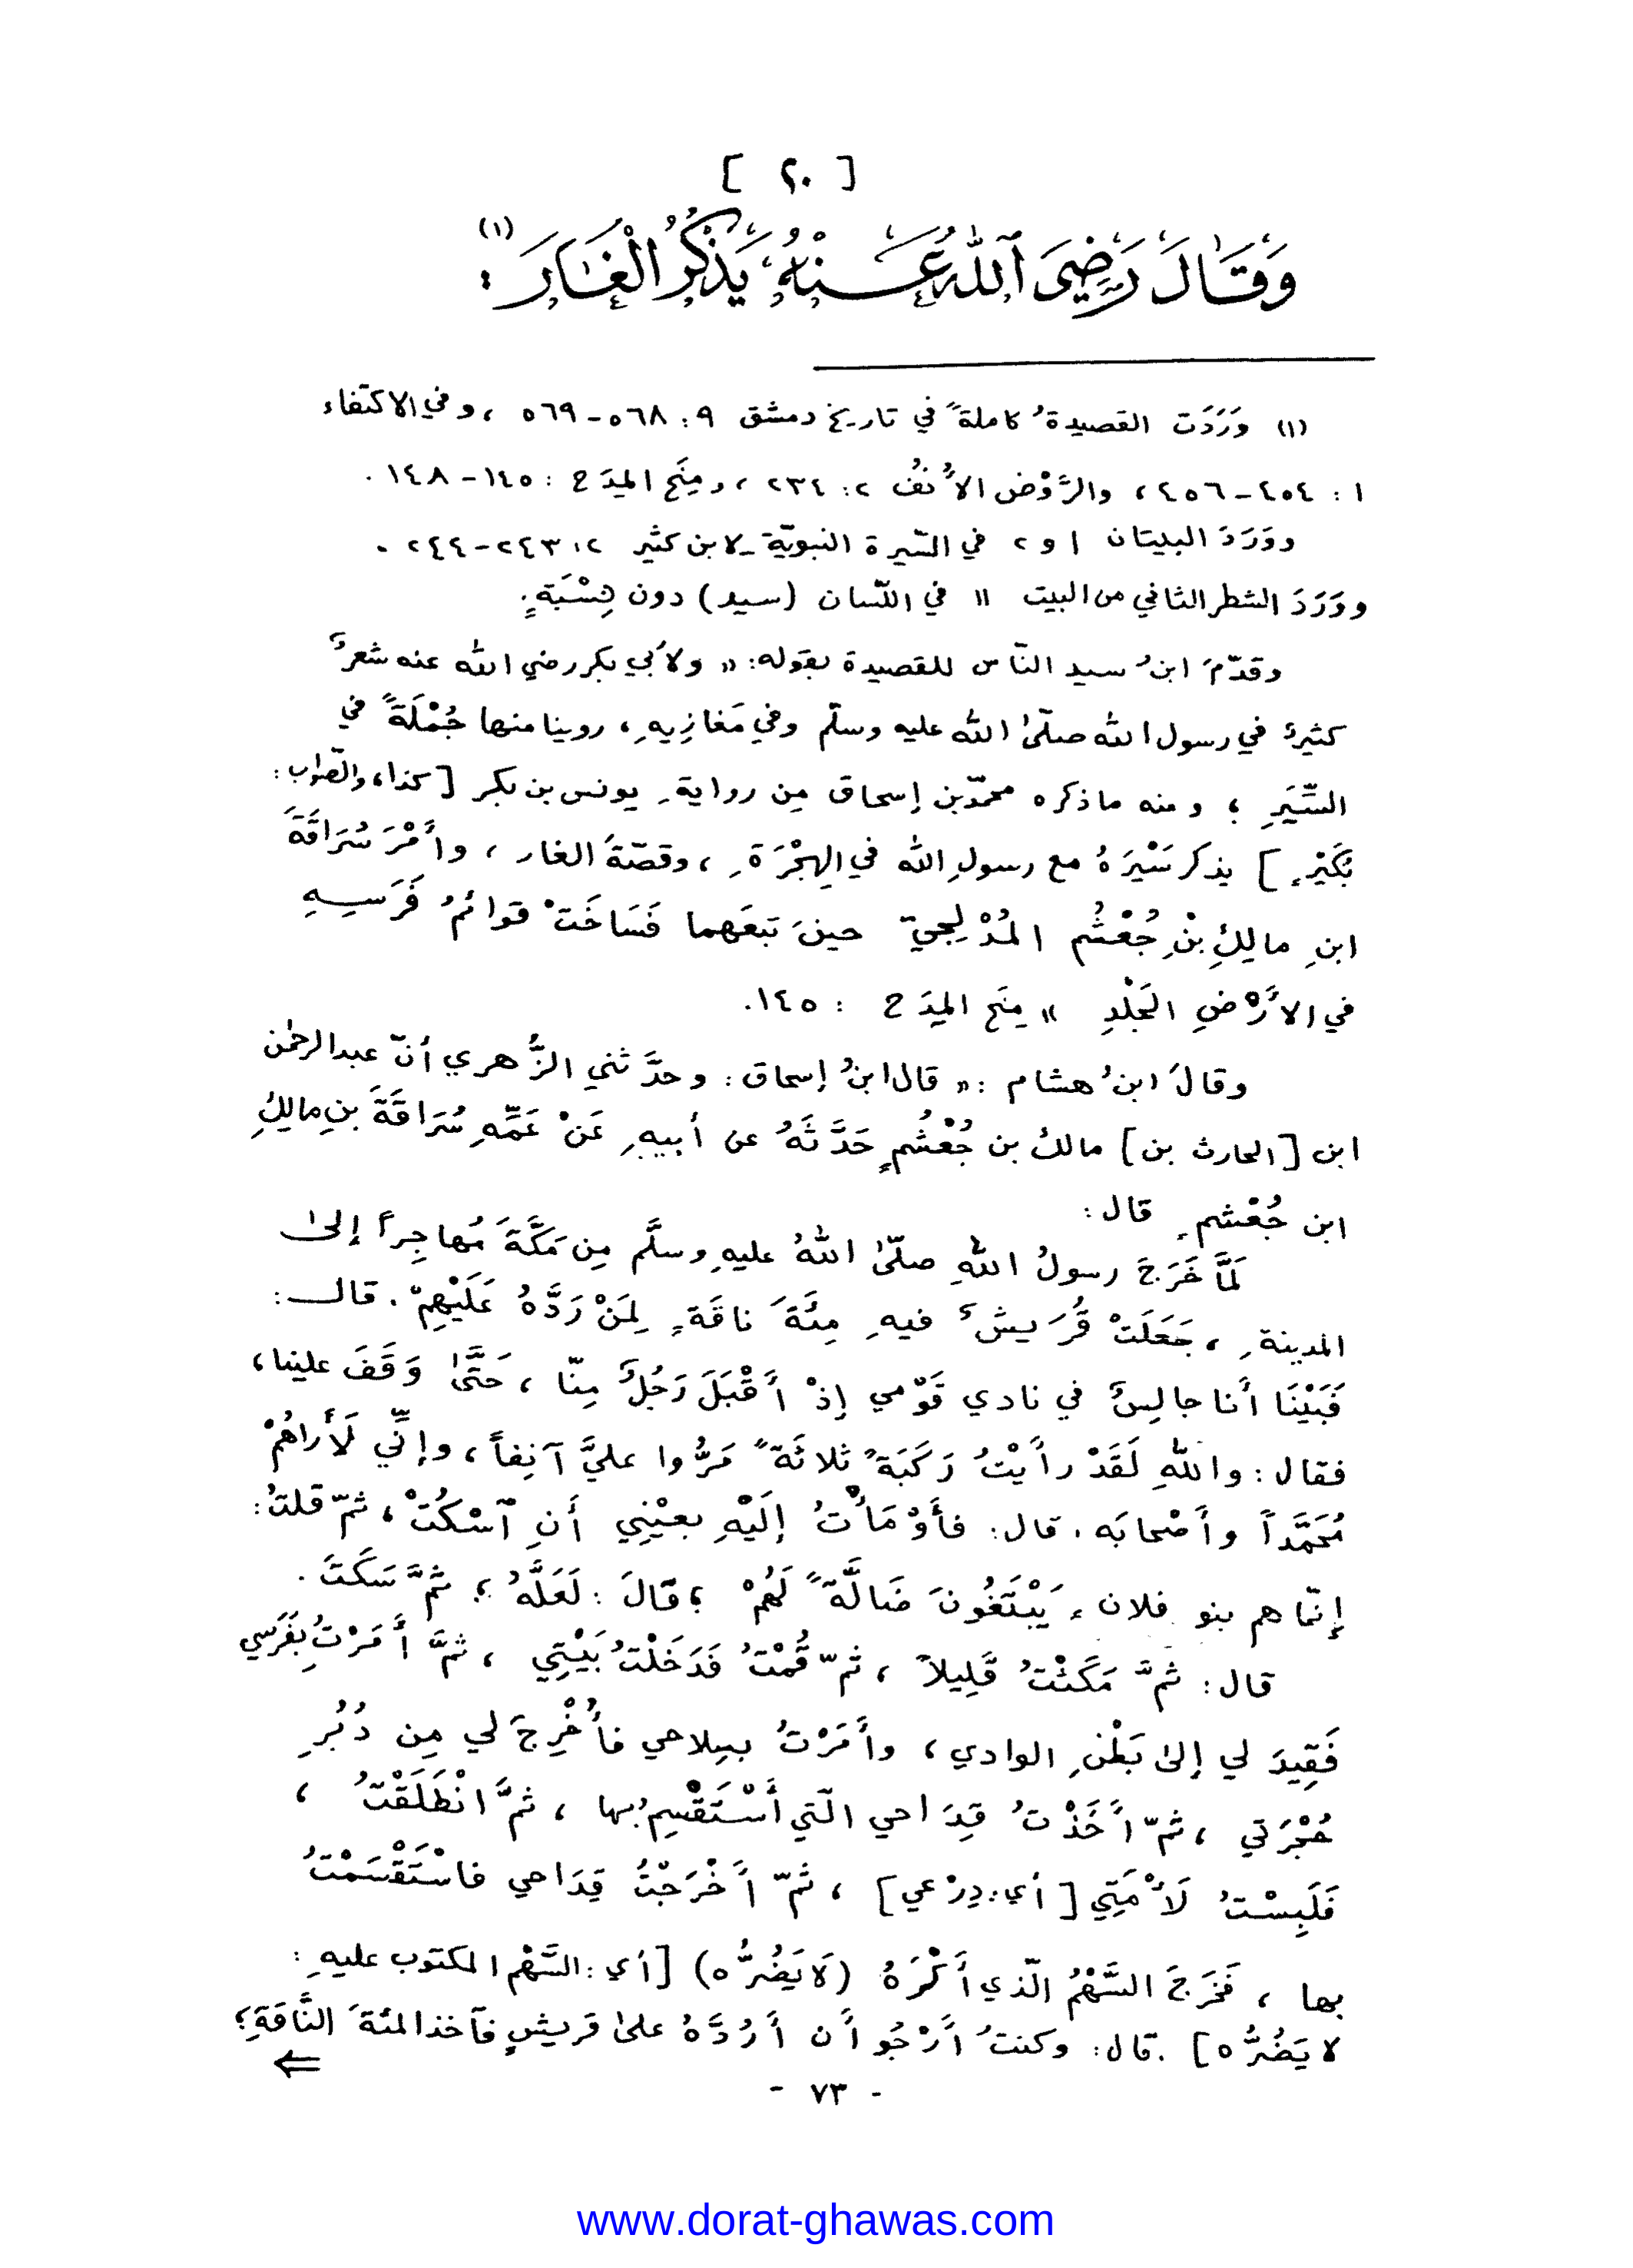 [ ٢٠ ]
وَقَالَ رَضِيَ ٱللهُ عَنْهُ يَذْكُرُ الْغَارَ : (١)
(١) وَرَدَت القصيدةُ كاملةً في تاريخ دمشق ٩ : ٥٦٨ - ٥٦٩ ، وفي الاكتفاء
١ : ٤٥٤ - ٤٥٦ ، والرَّوْض الأُنُف ٢ : ٢٣٤ ، ومِنَح المِدَح : ١٤٥ - ١٤٨ .
ووَرَدَ البيتان ١ و ٢ في السّيرة النبويّة لابن كثير ٢ : ٢٤٣ - ٢٤٤ .
ووَرَدَ الشطر الثاني من البيت ١١ في اللّسان (سيد) دون نِسْبَةٍ .
وقدّمَ ابنُ سيد النّاس للقصيدة بقوله : « ولأبي بكر رضي الله عنه شعرٌ
كثيرٌ في رسول الله صلّىٰ الله عليه وسلّم وفي مَغازِيهِ ، روينا منها جُمْلَةً في
السِّيَرِ ؛ ومنه ما ذكره محمّد بن إسحاق مِن روايةِ يونس بن بكر [ كذا ، والصّواب :
بُكَيْرٍ ] يذكر سَيْرَهُ مع رسولِ الله في الهِجْرَةِ ، وقصّةَ الغار ، وأَمْرَ سُرَاقَةَ
ابنِ مالِكِ بْنِ جُعْشُم المُدْلِجِيّ حينَ تبعَهما فَسَاخَتْ قوائمُ فَرَسِهِ
في الأَرْضِ الجَلْدِ » مِنَح المِدَح : ١٤٥ .
وقالَ ابنُ هشام : « قال ابنُ إسحاق : وحدَّثني الزُّهري أنّ عبد الرحمٰن
ابن [ الحارث بن ] مالك بن جُعْشُمٍ حَدَّثَهُ عن أبيهِ عَنْ عَمِّهِ سُرَاقَةَ بنِ مالِكِ
ابن جُعْشمٍ قال :
لَمَّا خَرَجَ رسولُ اللهِ صلّىٰ اللهُ عليهِ وسلَّم مِن مَكَّةَ مُهاجِراً إلىٰ
المدينةِ ، جَعَلَتْ قُرَيشٌ فيهِ مِئَةَ ناقَةٍ لِمَنْ رَدَّهُ عَلَيْهِمْ . قال :
فَبَيْنَا أَنا جالِسٌ في نادي قَوْمي إذْ أَقْبَلَ رَجُلٌ مِنّا ، حَتَّىٰ وَقَفَ علينا ،
فقال : واللهِ لَقَدْ رأَيْتُ رَكَبَةً ثلاثَةً مَرُّوا عليَّ آنِفاً ، وإنِّي لَأَراهُمْ
مُحَمَّداً وأَصْحابَه . قال : فأَوْمَأْتُ إلَيْهِ بعيْنِي أَنِ ٱسْكُتْ ، ثمّ قلتُ :
إنّما هم بنو فلان ، يَبْتَغُونَ ضَالَّةً لَهُمْ ؛ قالَ : لَعَلَّهُ ؛ ثمَّ سَكَتَ .
قال : ثمَّ مَكَثْتُ قَلِيلاً ، ثمّ قُمْتُ فَدَخَلْتُ بَيْتِي ، ثمَّ أَمَرْتُ بِفَرَسي
فَقِيدَ لي إلىٰ بَطْنِ الوادي ، وأَمَرْتُ بسِلاحي فأُخْرِجَ لي مِن دُبُرِ
حُجْرَتي ، ثمّ أَخَذْتُ قِدَاحي الّتي أَسْتَقْسِمُ بها ، ثمَّ انْطَلَقْتُ ،
فَلَبِسْتُ لَأْمَتِي [ أي : دِرْعي ] ، ثمّ أَخْرَجْتُ قِدَاحي فاسْتَقْسَمْتُ
بها ، فَخَرَجَ السَّهْمُ الّذي أَكْرَهُ (لَا يَضُرُّه) [ أي : السَّهْم المكتوب عليهِ :
لا يَضُرُّه ] . قال : وكنتُ أَرْجُو أَن أَرُدَّهُ علىٰ قريشٍ فآخذ المئةَ النَّاقَةِ ؛
⇐
- ٧٣ -
www.dorat-ghawas.com